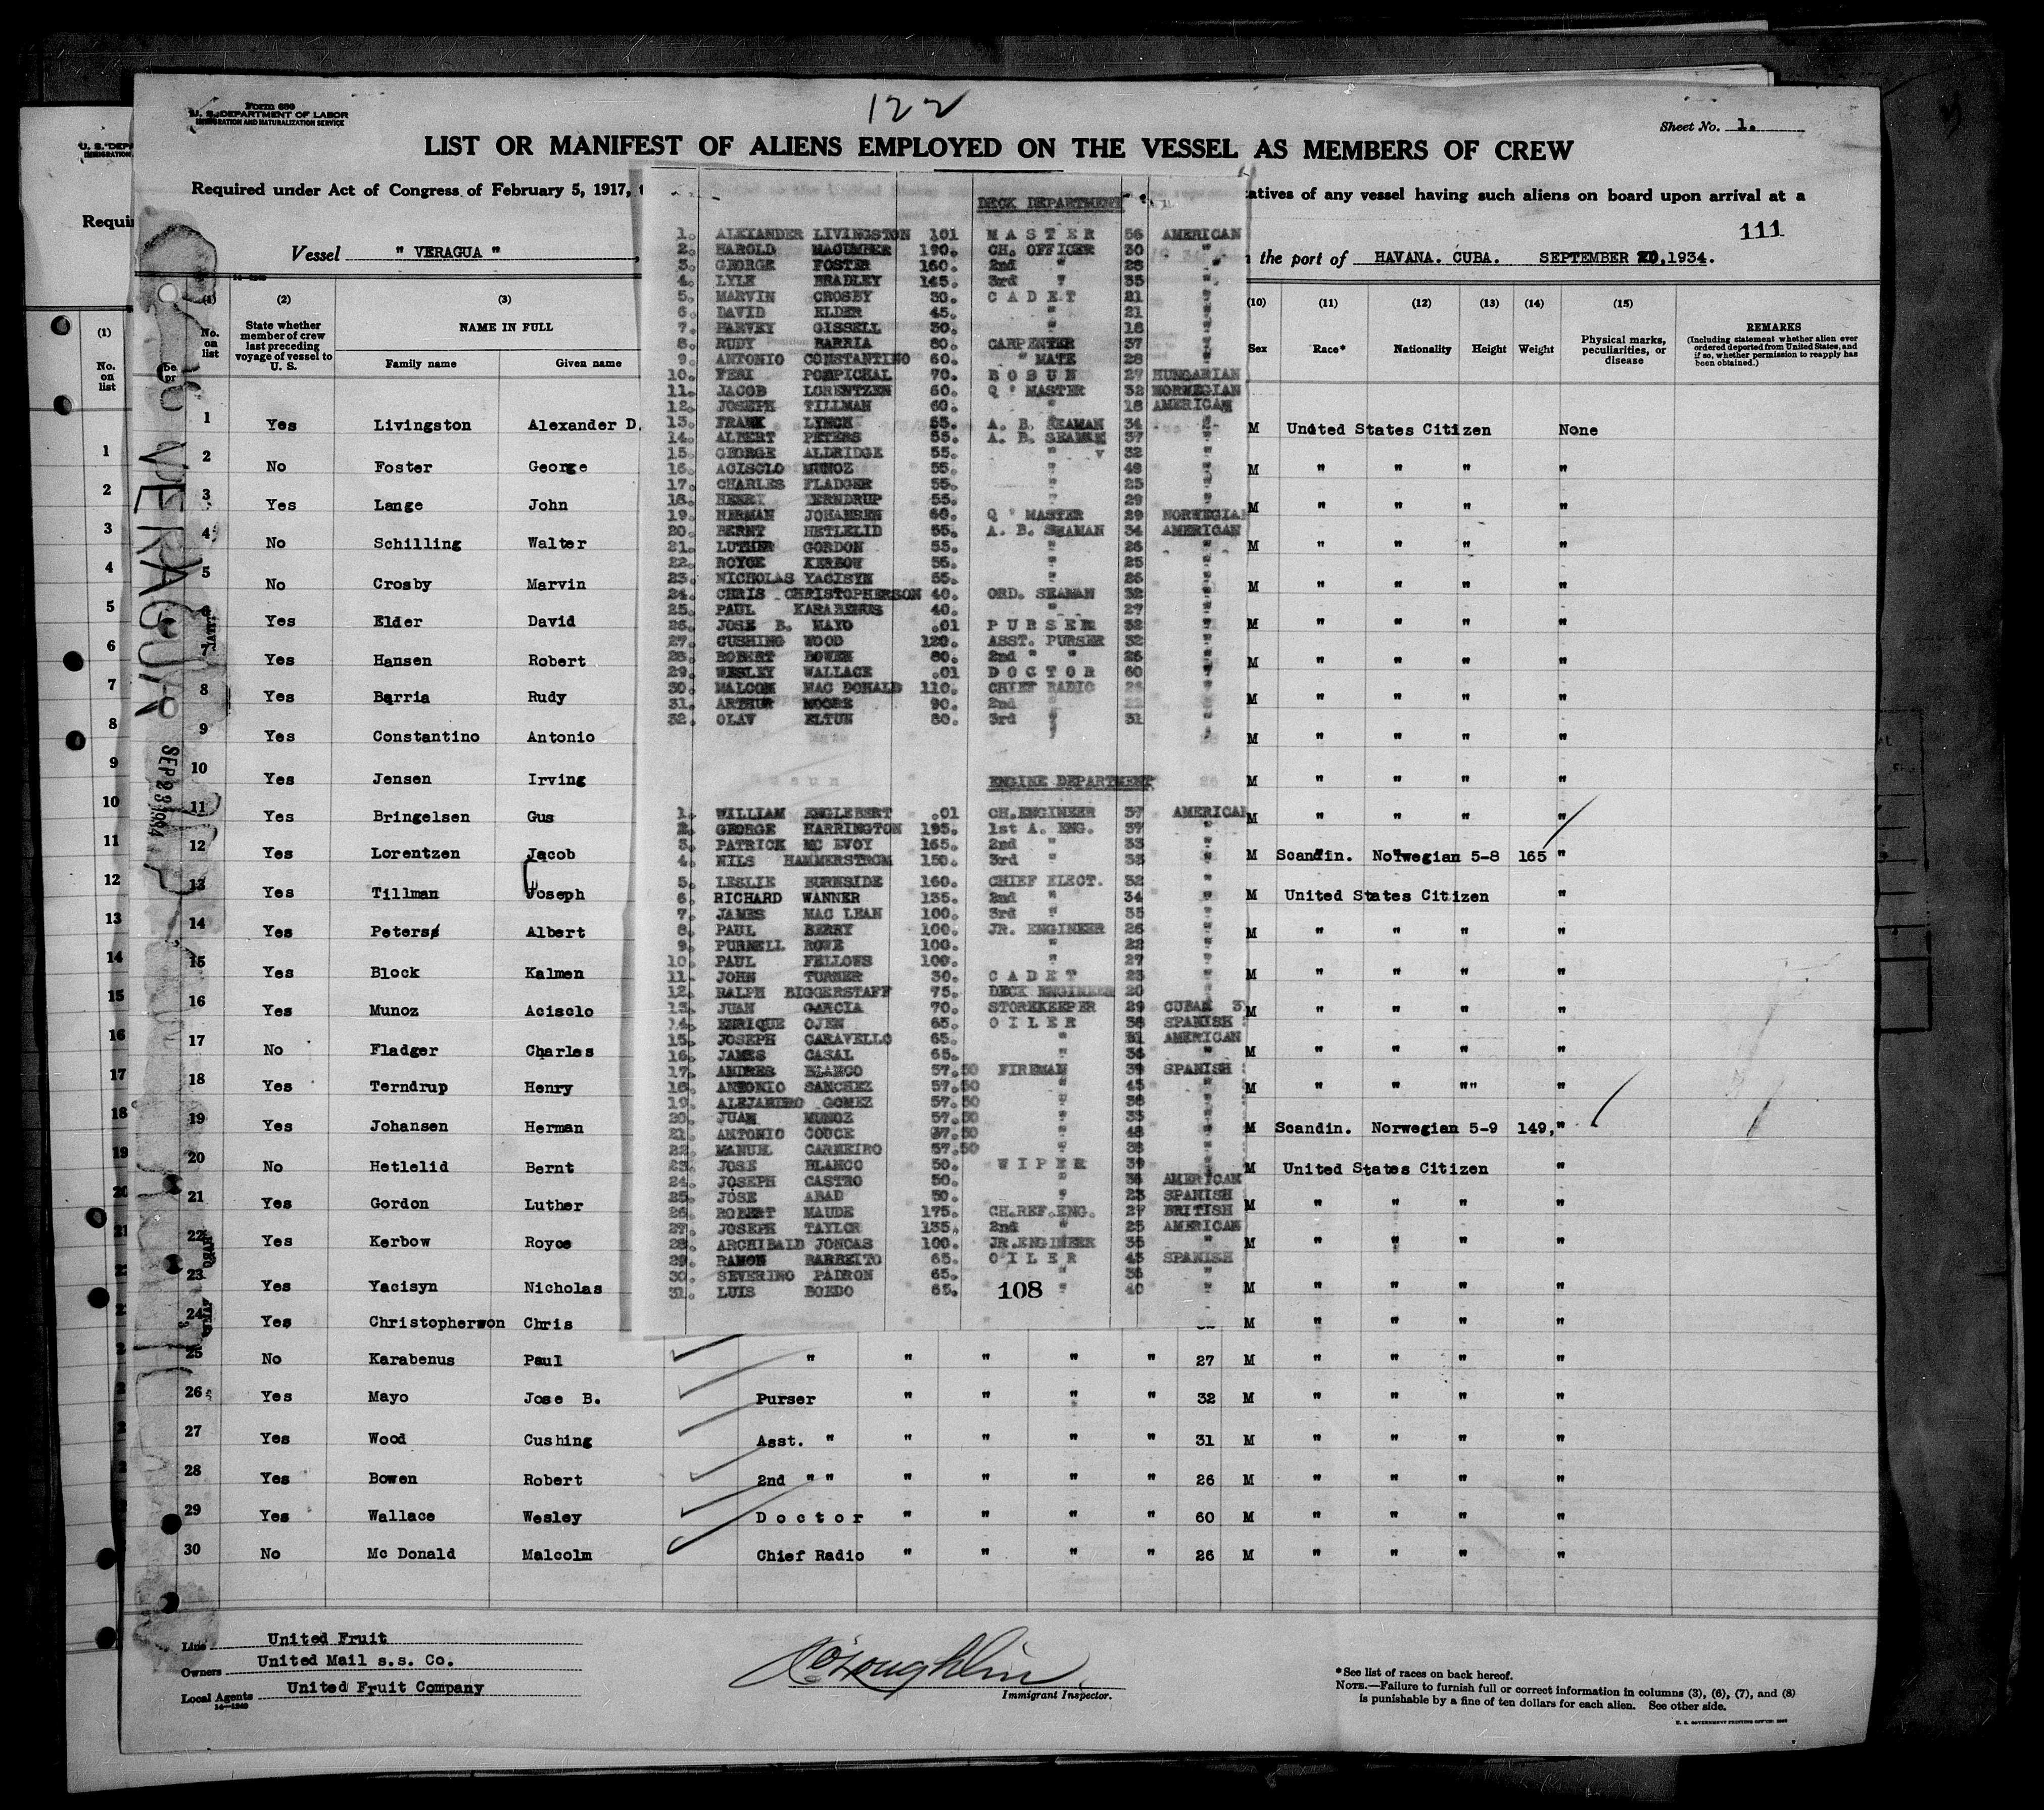 122
Form 680
U. S. DEPARTMENT OF LABOR
IMMIGRATION AND NATURALIZATION SERVICE
Sheet No. 1.
LIST OR MANIFEST OF ALIENS EMPLOYED ON THE VESSEL AS MEMBERS OF CREW
Required under Act of Congress of February 5, 1917,
atives of any vessel having such aliens on board upon arrival at a
111
Vessel " VERAGUA "
the port of HAVANA. CUBA. SEPTEMBER 20, 1934.
14-1240
(1) (2) (3)
No. on list
State whether member of crew last preceding voyage of vessel to U. S.
NAME IN FULL
Family name Given name
(10) (11) (12) (13) (14) (15)
Sex Race* Nationality Height Weight
Physical marks, peculiarities, or disease
REMARKS
(Including statement whether alien ever ordered deported from United States, and if so, whether permission to reapply has been obtained.)
DECK DEPARTMENT
1. ALEXANDER LIVINGSTON 101 M A S T E R 56 AMERICAN
2. HAROLD MACUMBER 190. CH. OFFICER 30 "
3. GEORGE FOSTER 160. 2nd " 28 "
4. LYLE BRADLEY 145. 3rd " 35 "
5. MARVIN CROSBY 30. C A D E T 21 "
6. DAVID ELDER 45. " 21 "
7. HARVEY GISSELL 30. " 18 "
8. RUDY BARRIA 80. CARPENTER 37 "
9. ANTONIO CONSTANTINO 60. " MATE 28 "
10. FERI POMPICHAL 70. B O S U N 27 HUNGARIAN
11. JACOB LORENTZEN 60. Q ' MASTER 32 NORWEGIAN
12. JOSEPH TILLMAN 60. " 18 AMERICAN
13. FRANK LYNCH 55. A. B. SEAMAN 34 "
14. ALBERT PETERS 55. A. B. SEAMAN 37 "
15. GEORGE ALDRIDGE 55. " 32 "
16. ACISCLO MUNOZ 55. " 48 "
17. CHARLES FLADGER 55. " 25 "
18. HENRY TERNDRUP 55. " 29 "
19. HERMAN JOHANSEN 60. Q ' MASTER 29 NORWEGIAN
20. BERNT HETLELID 55. A. B. SEAMAN 34 AMERICAN
21. LUTHER GORDON 55. " 26 "
22. ROYCE KERBOW 55. " 25 "
23. NICHOLAS YACISYN 55. " 26 "
24. CHRIS CHRISTOPHERSON 40. ORD. SEAMAN 32 "
25. PAUL KARABENUS 40. " 27 "
26. JOSE B. MAYO .01 P U R S E R 32 "
27. CUSHING WOOD 120. ASST. PURSER 32 "
28. ROBERT BOWEN 80. 2nd " " 26 "
29. WESLEY WALLACE .01 D O C T O R 60 "
30. MALCOM MAC DONALD 110. CHIEF RADIO 26 "
31. ARTHUR MOORE 90. 2nd " 22 "
32. OLAV ELTUN 80. 3rd " 31 "
ENGINE DEPARTMENT
1. WILLIAM ENGLEBERT .01 CH.ENGINEER 37 AMERICAN
2. GEORGE HARRINGTON 195. 1st A. ENG. 37 "
3. PATRICK MC EVOY 165. 2nd " 33 "
4. NILS HAMMERSTROM 150. 3rd " 33 "
5. LESLIE BURNSIDE 160. CHIEF ELECT. 32 "
6. RICHARD WANNER 135. 2nd " 34 "
7. JAMES MAC LEAN 100. 3rd " 35 "
8. PAUL BERRY 100. JR. ENGINEER 26 "
9. PURNELL ROWE 100. " 22 "
10. PAUL FELLOWS 100. " 27 "
11. JOHN TURNER 30. C A D E T 23 "
12. RALPH BIGGERSTAFF 75. DECK ENGINEER 20 "
13. JUAN GARCIA 70. STOREKEEPER 29 CUBAN
14. ENRIQUE OJEN 65. O I L E R 38 SPANISH
15. JOSEPH CARAVELLO 65. " 31 AMERICAN
16. JAMES CASAL 65. " 36 "
17. ANDRES BLANCO 57.50 FIREMAN 39 SPANISH
18. ANTONIO SANCHEZ 57.50 " 45 "
19. ALEJANDRO GOMEZ 57.50 " 38 "
20. JUAN MUNOZ 57.50 " 33 "
21. ANTONIO COUCE 57.50 " 48 "
22. MANUEL CARNEIRO 57.50 " 38 "
23. JOSE BLANCO 50. W I P E R 39 "
24. JOSEPH CASTRO 50. " 36 AMERICAN
25. JOSE ABAD 50. " 23 SPANISH
26. ROBERT MAUDE 175. CH.REF.ENG. 27 BRITISH
27. JOSEPH TAYLOR 135. 2nd " 25 AMERICAN
28. ARCHIBALD JONCAS 100. JR.ENGINEER 35 "
29. RAMON BARREITO 65. O I L E R 43 SPANISH
30. SEVERINO PADRON 65. " 36 "
31. LUIS BOEDO 65. " 40 "
108
1 Yes Livingston Alexander D. M United States Citizen None
2 No Foster George M " " " "
3 Yes Lange John M " " " "
4 No Schilling Walter M " " " "
5 No Crosby Marvin M " " " "
6 Yes Elder David M " " " "
7 Yes Hansen Robert M " " " "
8 Yes Barria Rudy M " " " "
9 Yes Constantino Antonio M " " " "
10 Yes Jensen Irving M " " " "
11 Yes Bringelsen Gus M " " " "
12 Yes Lorentzen Jacob M Scandin. Norwegian 5-8 165 "
13 Yes Tillman Joseph M United States Citizen "
14 Yes Peters Albert M " " " "
15 Yes Block Kalmen M " " " "
16 Yes Munoz Acisclo M " " " "
17 No Fladger Charles M " " " "
18 Yes Terndrup Henry M " " "" "
19 Yes Johansen Herman M Scandin. Norwegian 5-9 149, "
20 No Hetlelid Bernt M United States Citizen "
21 Yes Gordon Luther M " " " "
22 Yes Kerbow Royce M " " " "
23 Yes Yacisyn Nicholas M " " " "
24 Yes Christopherson Chris M " " " "
25 No Karabenus Paul " " " " " 27 M " " " "
26 Yes Mayo Jose B. Purser " " " " 32 M " " " "
27 Yes Wood Cushing Asst. " " " " " 31 M " " " "
28 Yes Bowen Robert 2nd " " " " " " 26 M " " " "
29 Yes Wallace Wesley D o c t o r " " " " 60 M " " " "
30 No Mc Donald Malcolm Chief Radio " " " " 26 M " " " "
VERAGUA
SEP 23 1934
Line United Fruit
Owners United Mail s.s. Co.
Local Agents United Fruit Company
14-1240
Immigrant Inspector.
*See list of races on back hereof.
NOTE.—Failure to furnish full or correct information in columns (3), (6), (7), and (8)
is punishable by a fine of ten dollars for each alien. See other side.